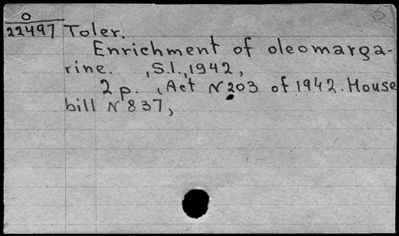 O
22497 Toler.
Enrichment of oleomarga-
rine. , S.l., 1942,
2 p. (Act N 203 of 1942. House
bill N 837,